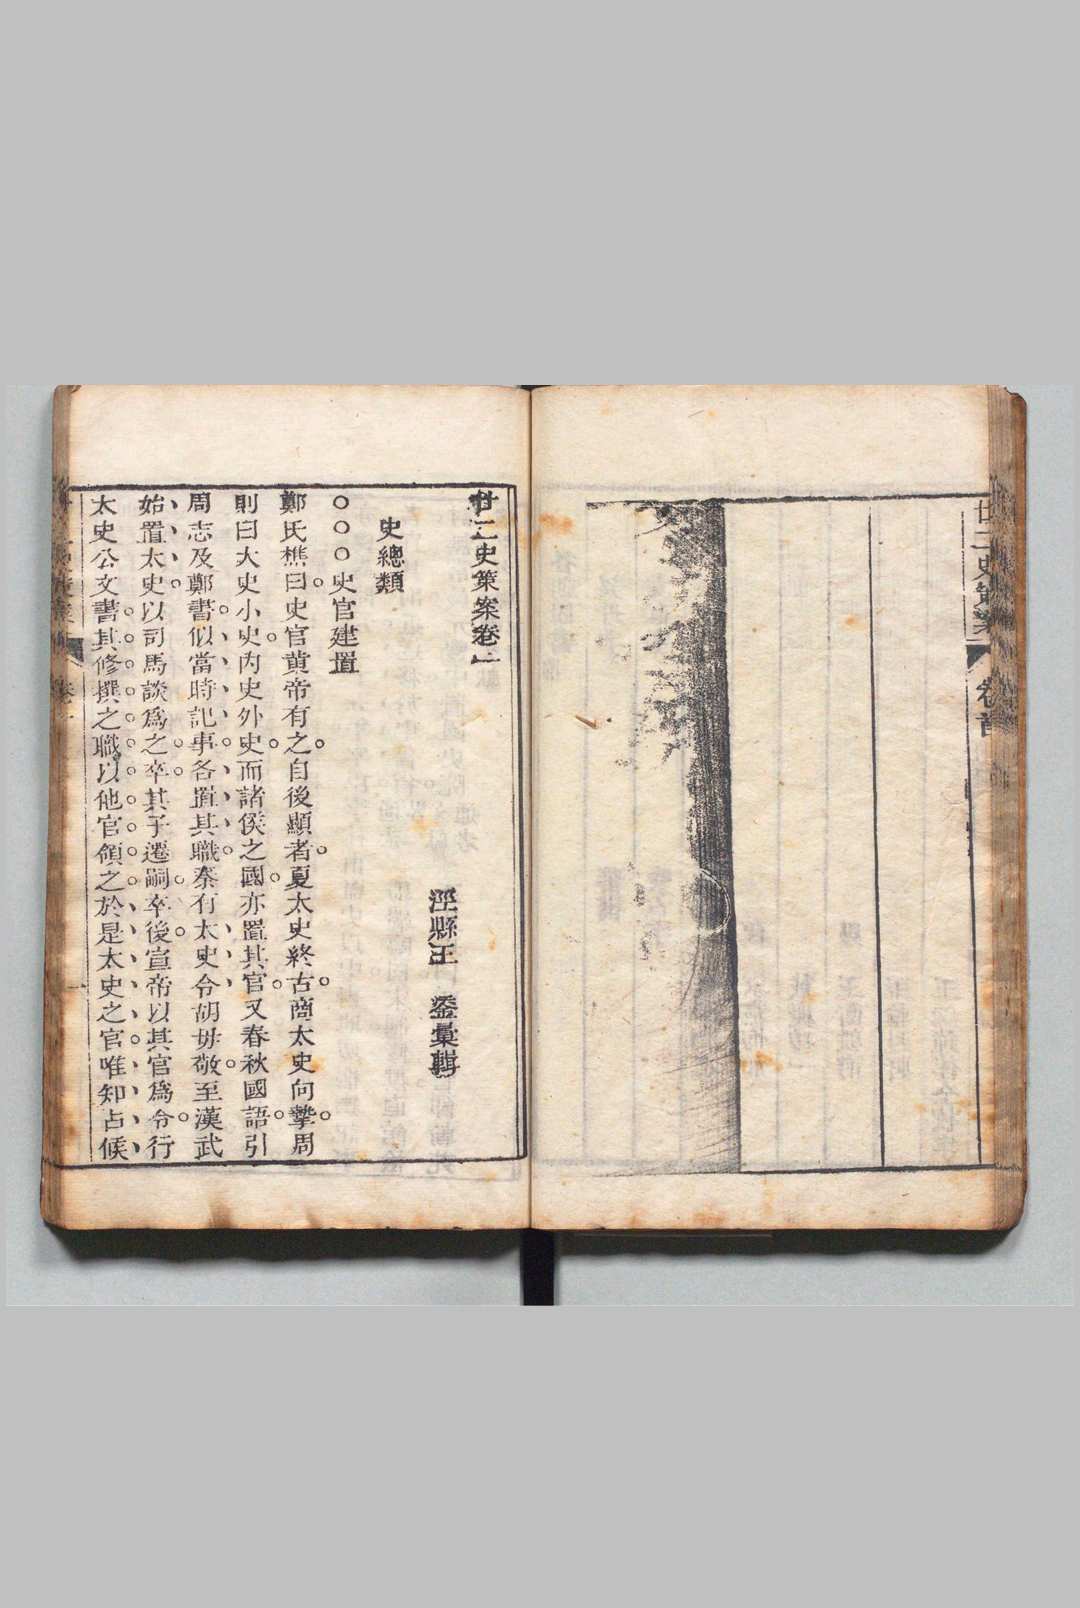 廿二史策案 卷首
廿二史策案卷一
涇縣王 鎏彙輯
史總類
○○○史官建置
鄭氏樵曰史官黄帝有之自後顯者夏太史終古商太史向摯周
則曰大史小史内史外史而諸侯之國亦置其官又春秋國語引
周志及鄭書似當時記事各置其職秦有太史令胡毋敬至漢武
始置太史以司馬談爲之卒其子遷嗣卒後宣帝以其官爲令行
太史公文書其修撰之職以他官領之於是太史之官唯知占候